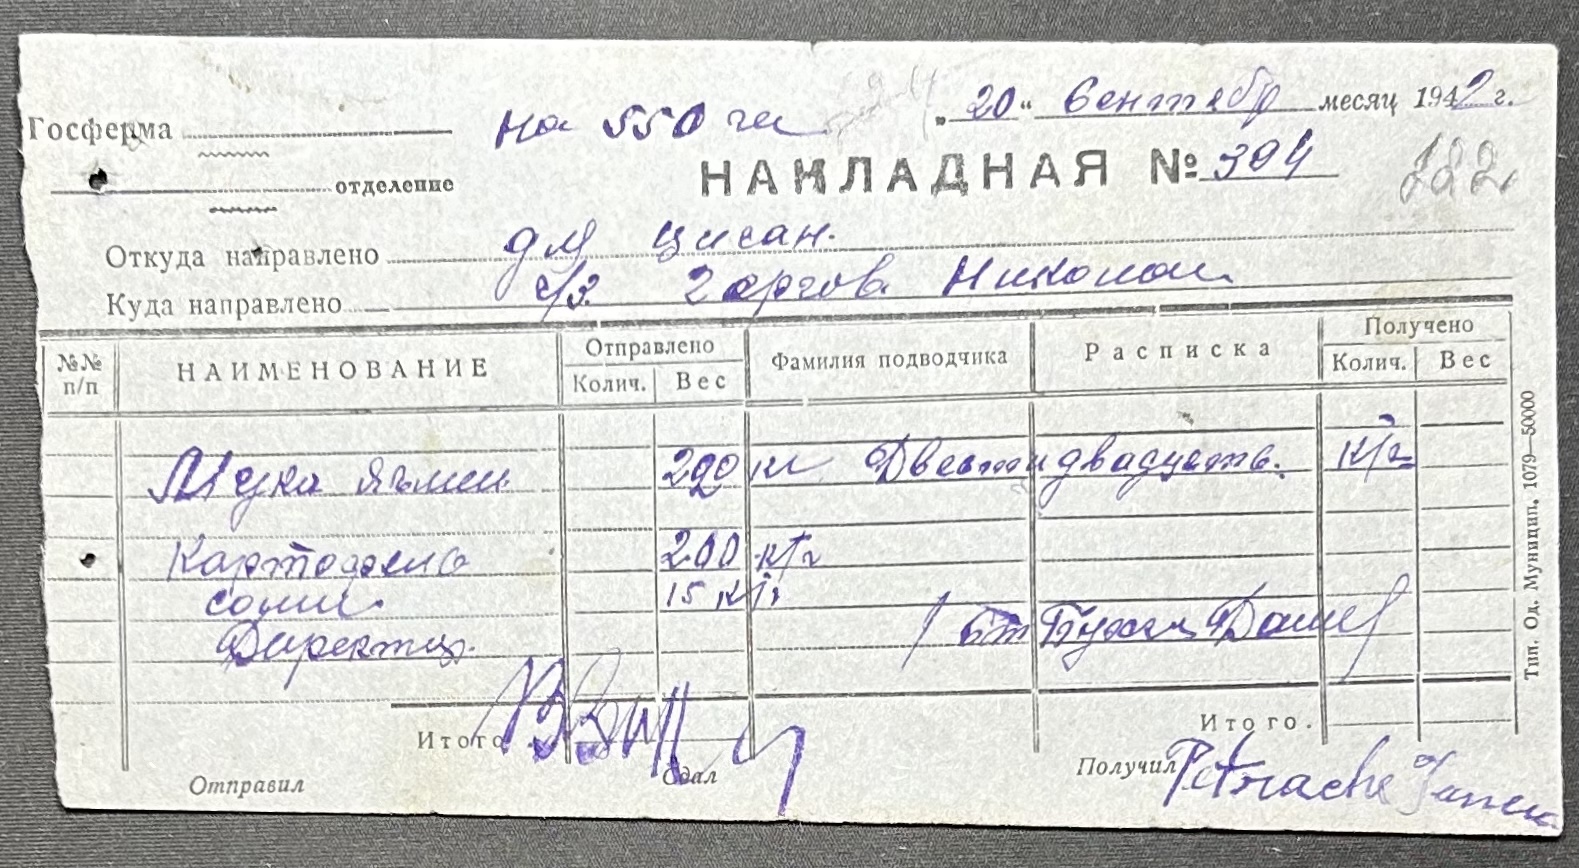 Госферма
на 550 га
„ 20 “ Сентябр месяц 1942 г.
отделение
НАКЛАДНАЯ № 394
122
Откуда направлено для цисан.
Куда направлено с/з. Николай
№№ п/п НАИМЕНОВАНИЕ Отправлено Колич. Вес Фамилия подводчика Расписка Получено Колич. Вес
Мука ячмен 220 кг Двести двадцать. к/г
Картофель 200 к/г
соли 15 к/г
Директор.
Итого
Итого.
Отправил
Сдал
Получил Petrache
Тип. Од. Муницип. 1079—50000